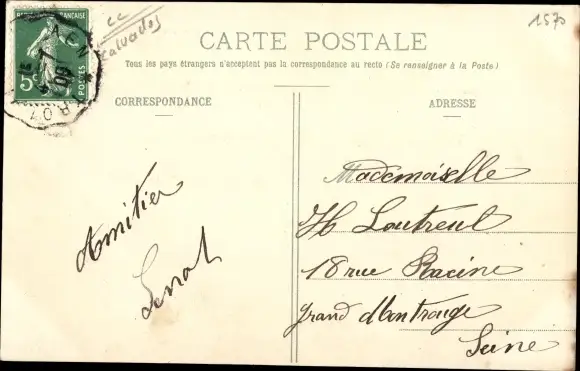 1570
cc
Calvados
RÉPUBLIQUE FRANÇAISE
5c
POSTES
CARTE POSTALE
Tous les pays étrangers n'acceptent pas la correspondance au recto (Se renseigner à la Poste)
CORRESPONDANCE
ADRESSE
Amitier
Mademoiselle
H Loutreul
18 rue Racine
Grand Montrouge
Seine